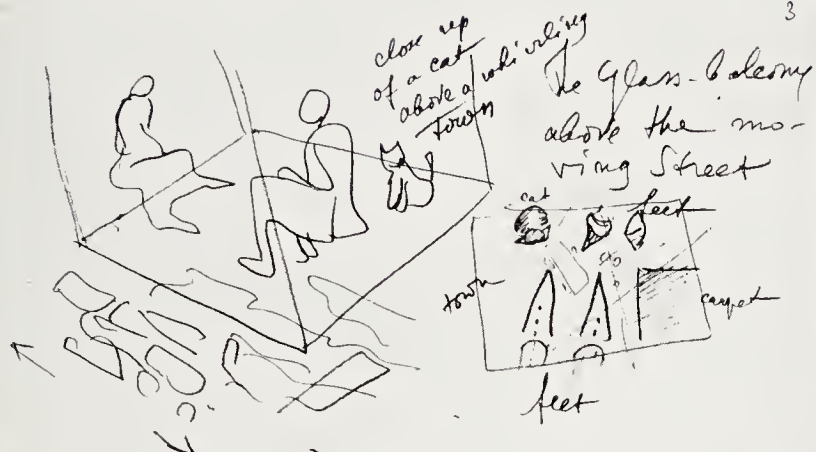 3
close up
of a cat
above a whirling
town
The Glass-balcony
above the mo-
ving Street
cat
feet
town
carpet
feet